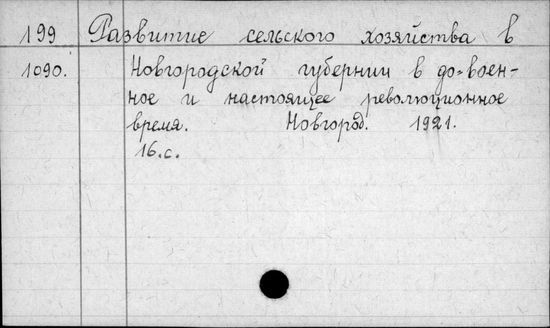 199 Развитие сельского хозяйства в
1090. Новгородской губернии в до-воен-
ное и настоящее революционное
время. Новгород. 1921.
16.с.